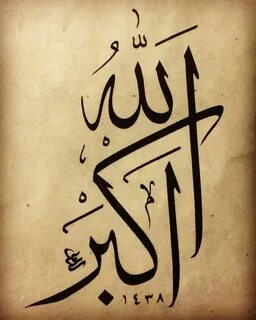 اللهُ
أكبر
١٤٣٨